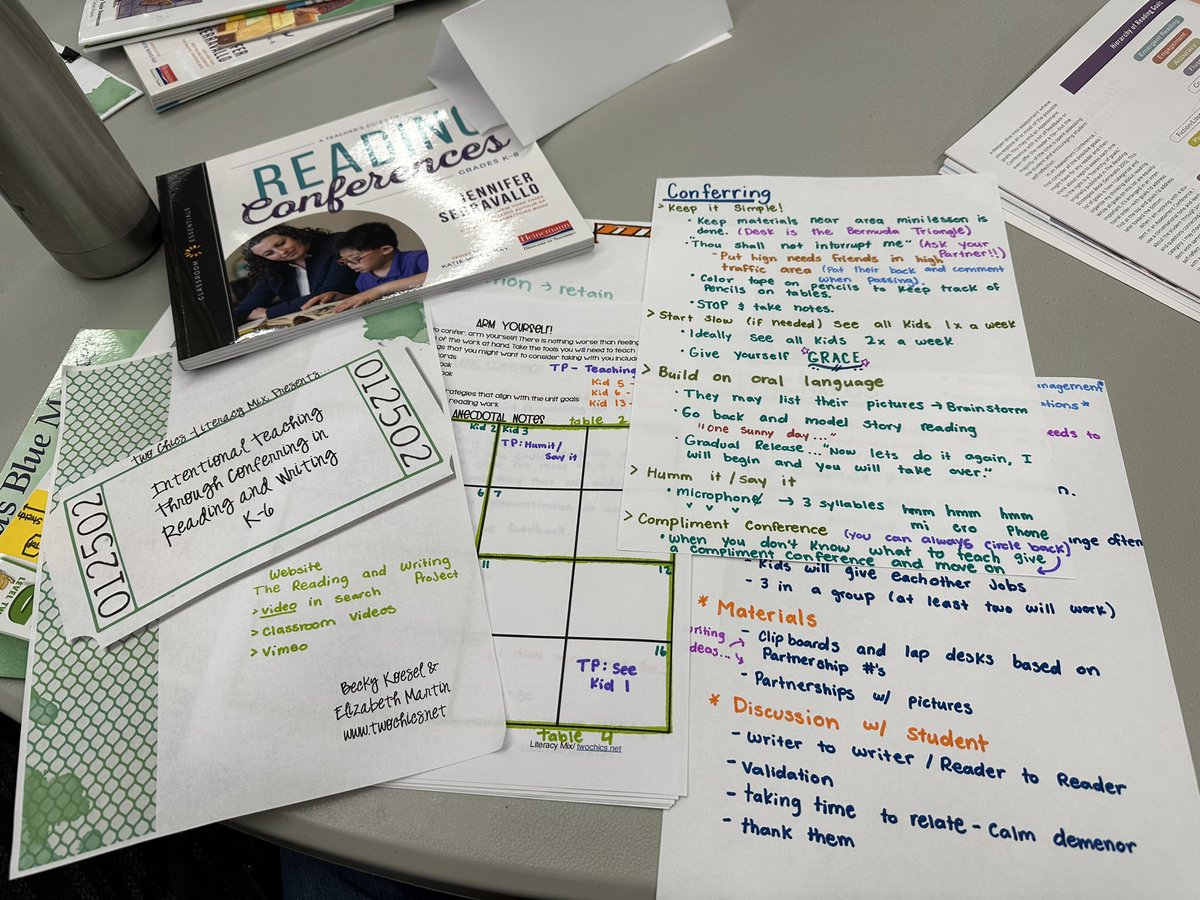 SERRAVALLO
Heinemann
A TEACHER'S GUIDE TO
READING
Conferences
GRADES K–8
JENNIFER
SERRAVALLO
Heinemann
CLASSROOM ESSENTIALS
Hierarchy of Reading Goals
Emergent Reading
Engagement
Accuracy
s Blue M
Two Chics - Literacy Mix Presents...
Intentional Teaching
Through Conferring in
Reading and Writing
K-6
012502
012502
Website
The Reading and Writing
Project
> video in search
> Classroom videos
> Vimeo
Becky Koesel &
Elizabeth Martin
www.twochics.net
→ retain
ARM YOURSELF!
to confer, arm yourself! There is nothing worse than feeling
of the work at hand. Take the tools you will need to teach
gs that you might want to consider taking with you include
TP - Teaching
Kid 5 -
Kid 6 -
Kid 13 -
rategies that align with the unit goals
reading work
ANECDOTAL NOTES
table 2
Kid 2
Kid 3
TP: Humit/
Say it
6
7
11
12
16
TP: See
Kid 1
table 4
Literacy Mix/ twochics.net
Conferring
> Keep it Simple!
• Keep materials near area minilesson is
done. (Desk is the Bermuda Triangle)
• "Thou shall not inturrupt me" (Ask your
Partner!!)
- Put hign needs friends in high
traffic area (Pat their back and comment
when passing).
• Color tape on pencils to keep track of
Pencils on tables.
• STOP & take notes.
> Start Slow (if needed) See all Kids 1x a week
• Ideally see all Kids 2x a week
• Give yourself GRACE
> Build on oral language
• They may list their pictures → Brainstorm
• Go back and model story reading
"One sunny day..."
• Gradual Release..."Now lets do it again, I
will begin and you will take over."
> Humm it / say it
• microphone → 3 syllables hmm hmm hmm
mi cro Phone
> Compliment Conference (you can always circle back)
• when you don't know what to teach give
a compliment conference and move on
nagement*
ations*
eeds to
n.
inge often
- Kids will give eachother Jobs
- 3 in a group (at least two will work)
* Materials
- Clipboards and lap desks based on
Partnership #'s
- Partnerships w/ pictures
writing
ideas...
* Discussion w/ student
- writer to writer / Reader to Reader
- Validation
- taking time to relate - Calm demenor
- thank them